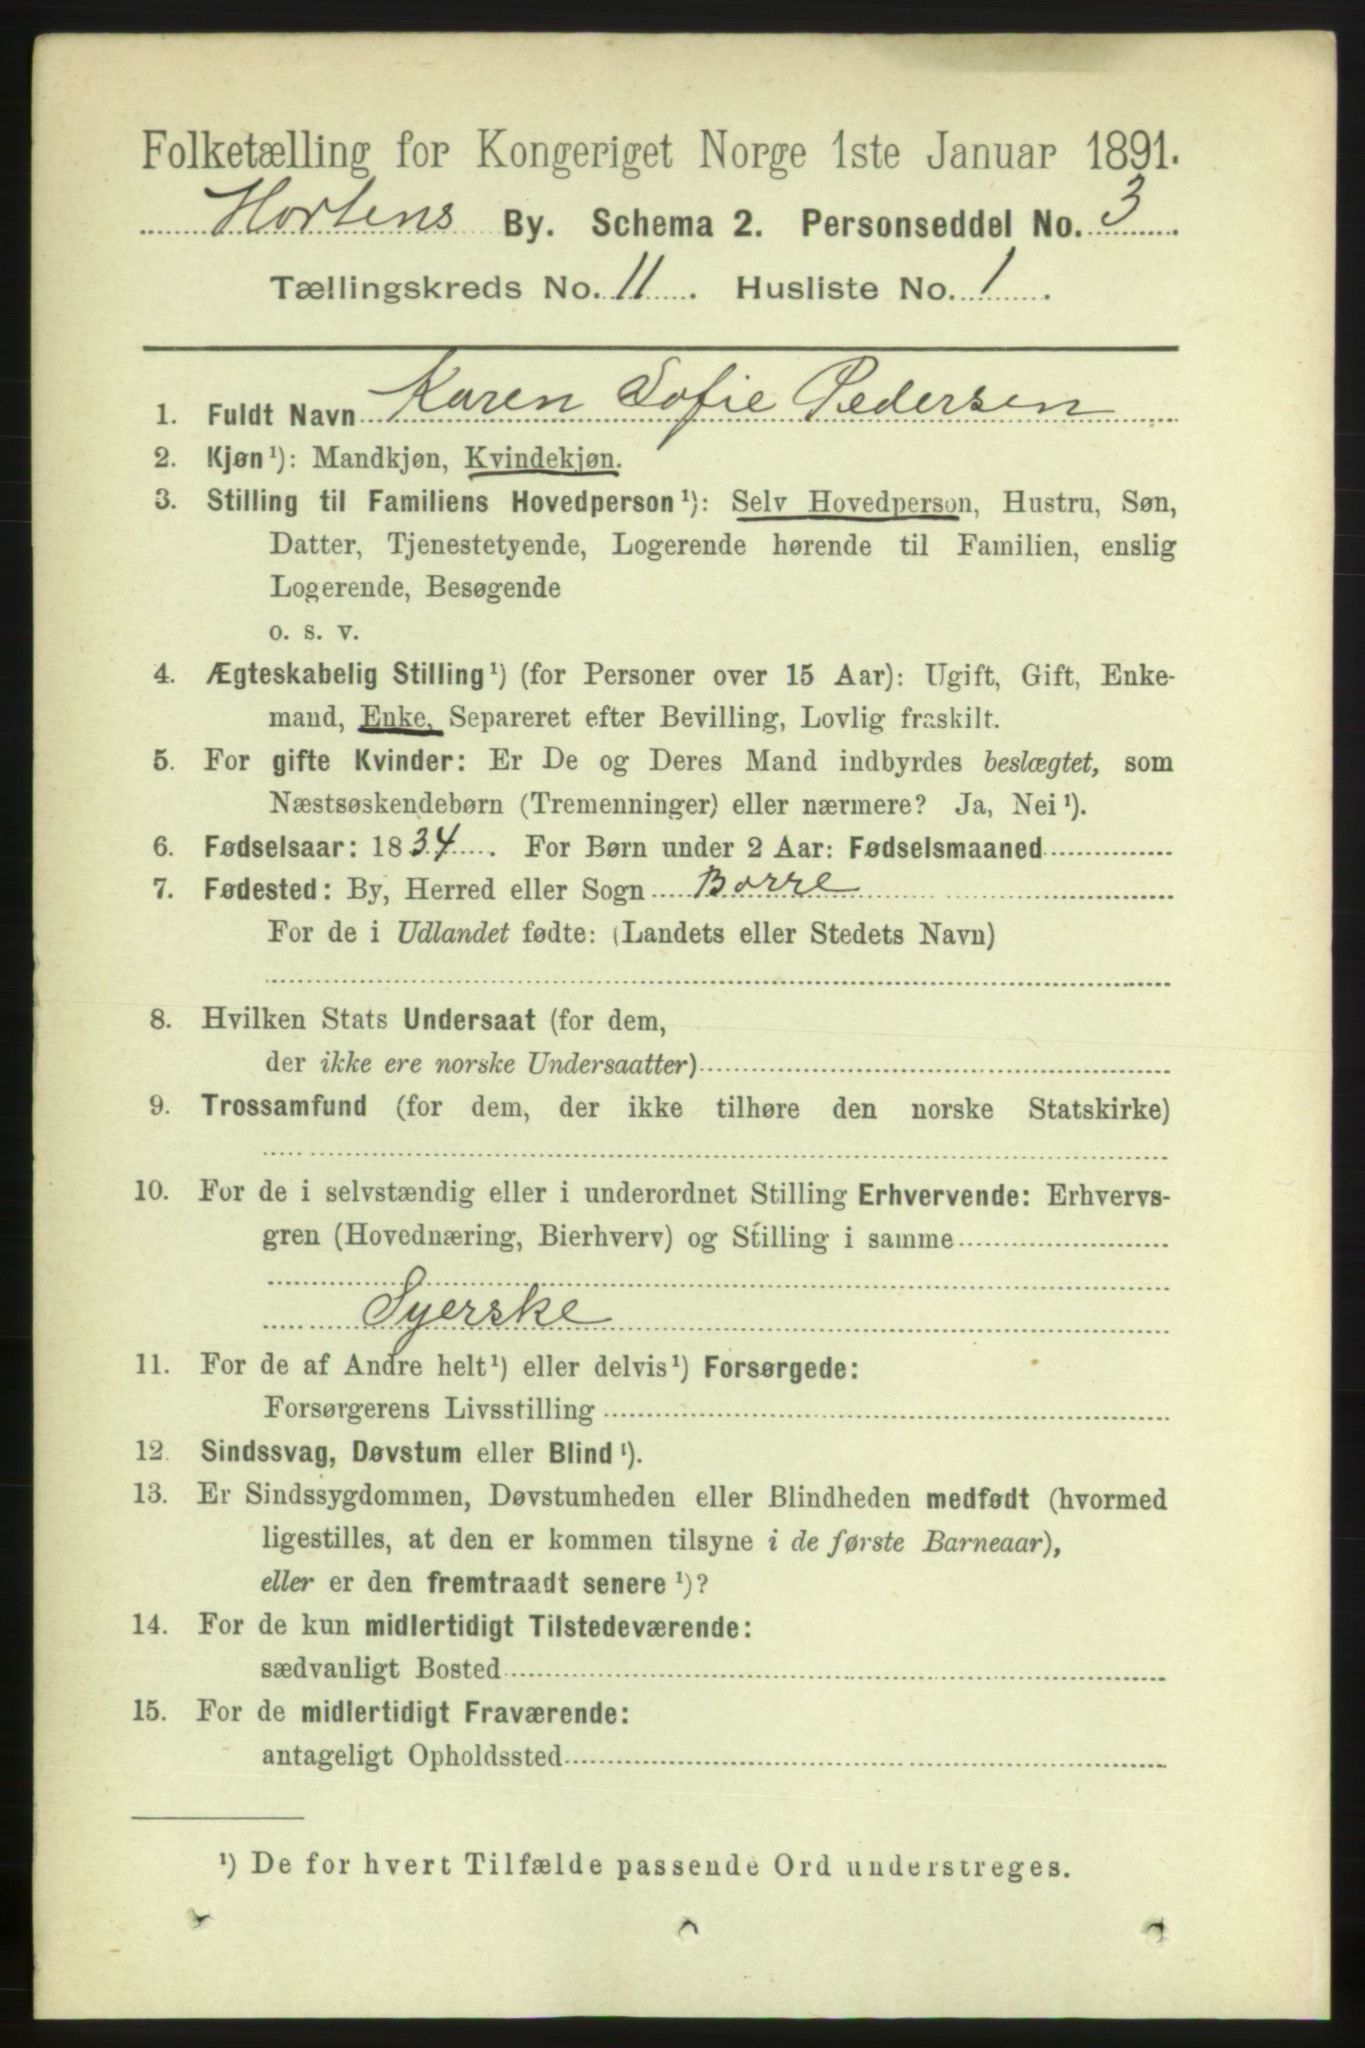 Folketælling for Kongeriget Norge 1ste Januar 1891.
Hortens By. Schema 2. Personseddel No. 3
Tællingskreds No. 11. Husliste No. 1.
1. Fuldt Navn Karen Sofie Pedersen
2. Kjøn¹): Mandkjøn, Kvindekjøn.
3. Stilling til Familiens Hovedperson¹): Selv Hovedperson, Hustru, Søn,
Datter, Tjenestetyende, Logerende hørende til Familien, enslig
Logerende, Besøgende
o. s. v.
4. Ægteskabelig Stilling¹) (for Personer over 15 Aar): Ugift, Gift, Enke-
mand, Enke, Separeret efter Bevilling, Lovlig fraskilt.
5. For gifte Kvinder: Er De og Deres Mand indbyrdes beslægtet, som
Næstsøskendebørn (Tremenninger) eller nærmere? Ja, Nei¹).
6. Fødselsaar: 1834. For Børn under 2 Aar: Fødselsmaaned
7. Fødested: By, Herred eller Sogn Borre
For de i Udlandet fødte: (Landets eller Stedets Navn)
8. Hvilken Stats Undersaat (for dem,
der ikke ere norske Undersaatter)
9. Trossamfund (for dem, der ikke tilhøre den norske Statskirke)
10. For de i selvstændig eller i underordnet Stilling Erhvervende: Erhvervs-
gren (Hovednæring, Bierhverv) og Stilling i samme
Syerske
11. For de af Andre helt¹) eller delvis¹) Forsørgede:
Forsørgerens Livsstilling
12. Sindssvag, Døvstum eller Blind¹).
13. Er Sindssygdommen, Døvstumheden eller Blindheden medfødt (hvormed
ligestilles, at den er kommen tilsyne i de første Barneaar),
eller er den fremtraadt senere¹)?
14. For de kun midlertidigt Tilstedeværende:
sædvanligt Bosted
15. For de midlertidigt Fraværende:
antageligt Opholdssted
¹) De for hvert Tilfælde passende Ord understreges.